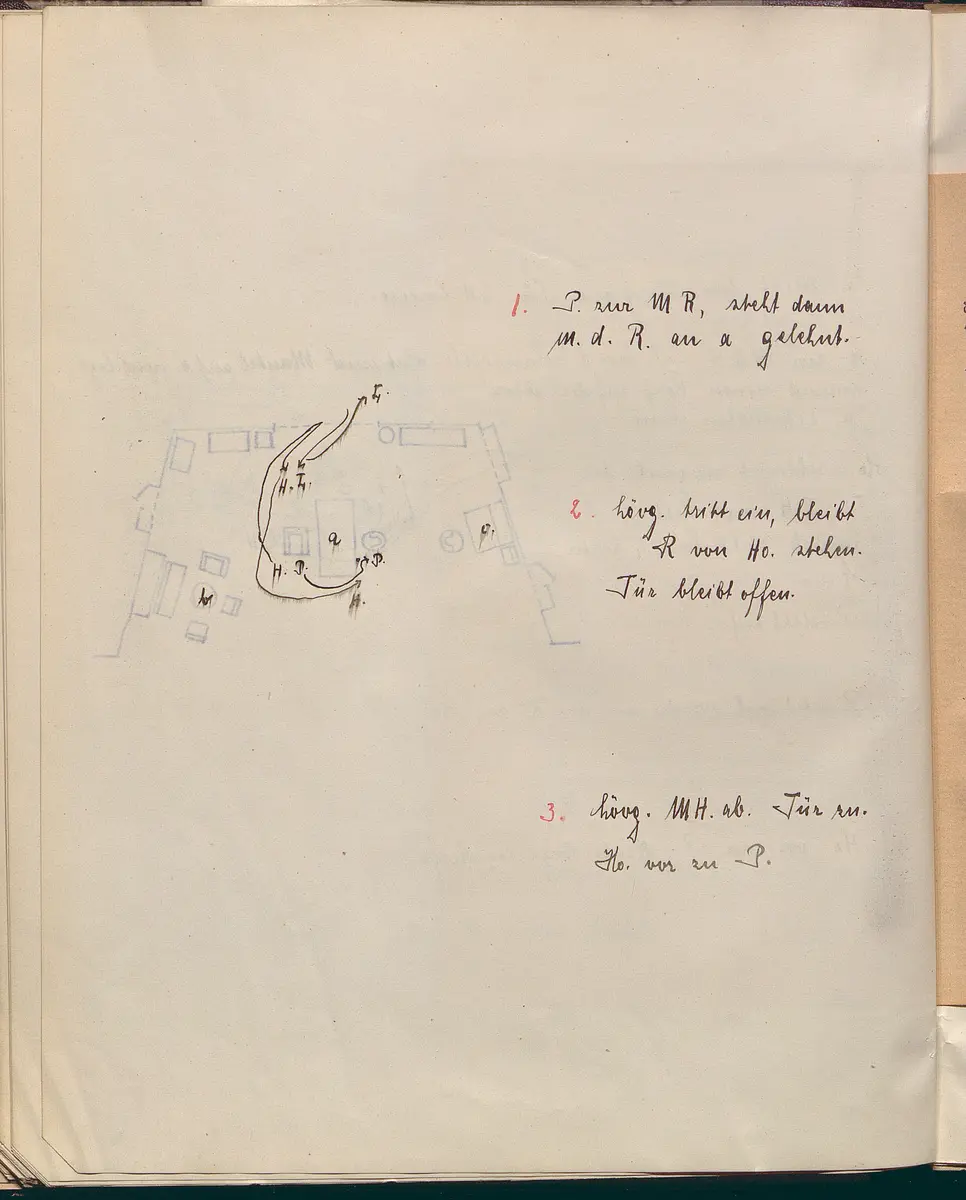 1. P. zur M R, steht dann
m. d. R. an a gelehnt.
L.
H. L.
a
g.
2. Lövg. tritt ein, bleibt
R von Ho. stehen.
Tür bleibt offen.
H. P. P.
b
H.
3. Lövg. MH. ab. Tür zu.
Ho. vor zu P.